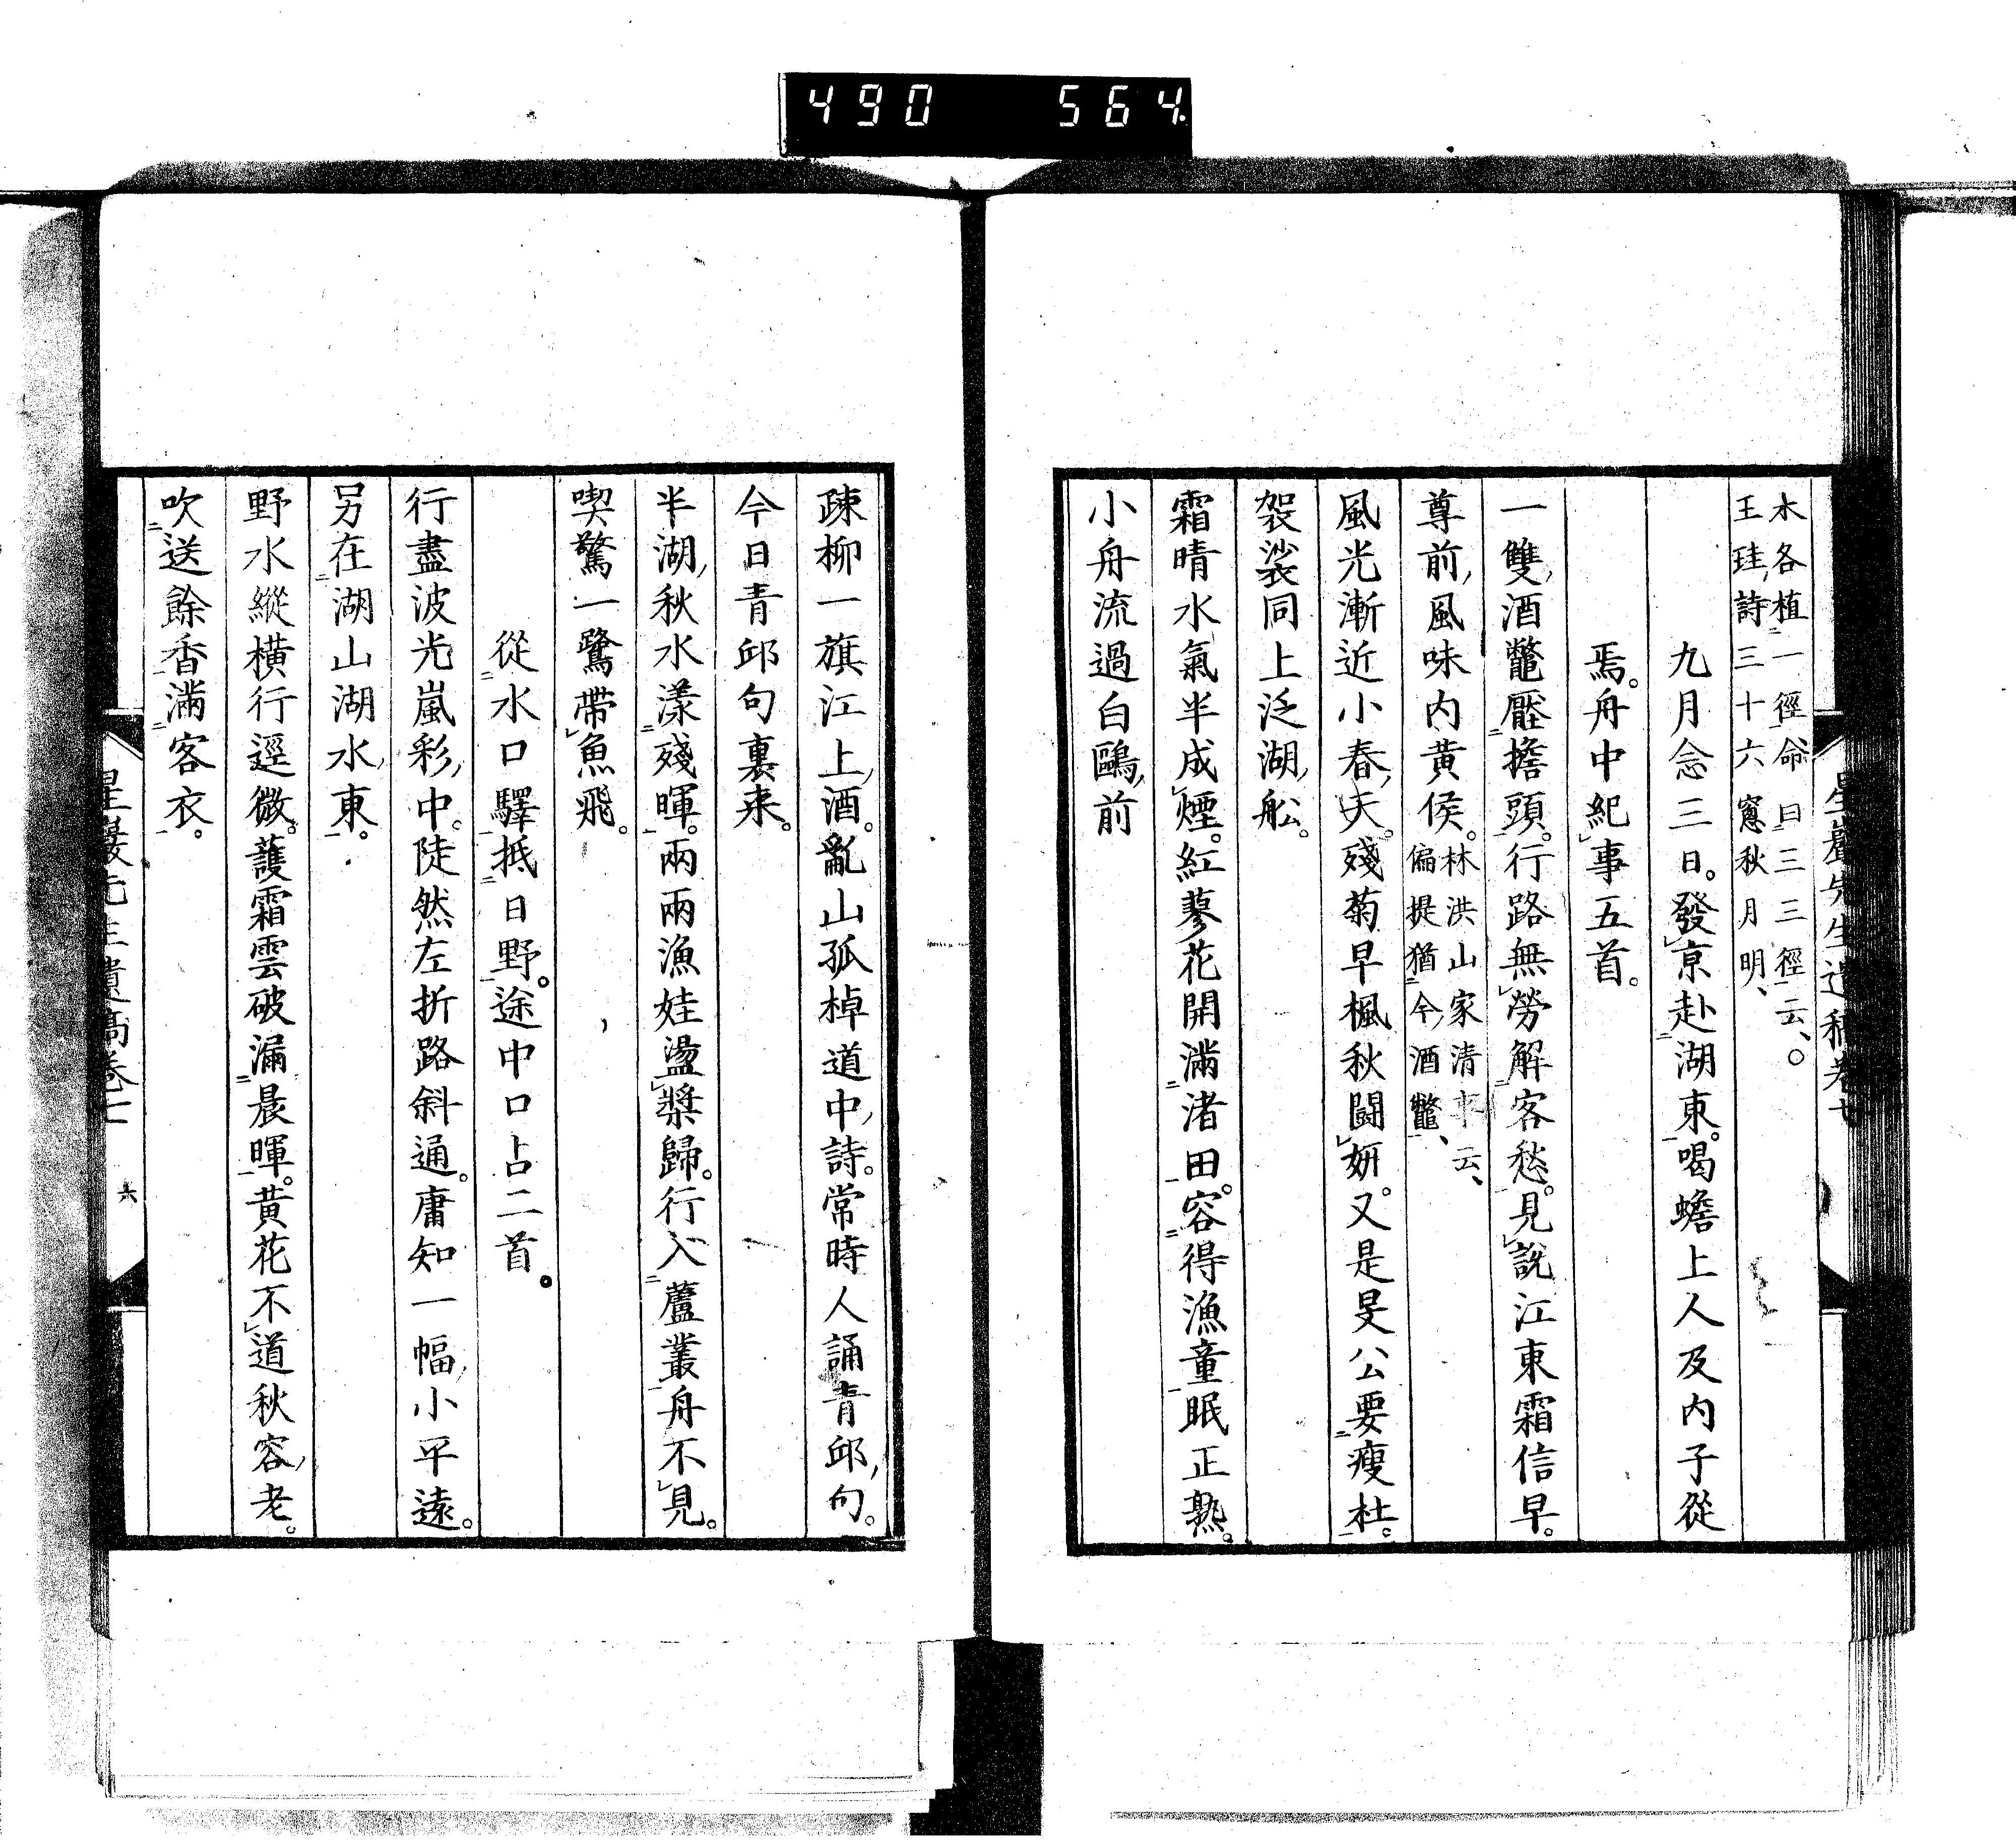 490 564
木各植一徑命曰三三徑云、
王珪詩三十六窻秋月明、
九月念三日。發京赴湖東。喝蟾上人及內子從
焉。舟中紀事五首。
一雙酒鼈壓擔頭。行路無勞解客愁。見說江東霜信早。
尊前風味內黃侯。林洪山家清 云、
偏提猶今酒鼈、
風光漸近小春天。殘菊早楓秋鬪妍。又是旻公要瘦杜。
袈裟同上泛湖船。
霜晴水氣半成煙。紅蓼花開滿渚田。容得漁童眠正熟。
小舟流過白鷗前
疎柳一旗江上酒。亂山孤棹道中詩。常時人誦青邱句。
今日青邱句裏來。
半湖秋水漾殘暉。兩兩漁娃盪槳歸。行入蘆叢舟不見。
喫驚一鷺帶魚飛。
從水口驛抵日野。途中口占二首。
行盡波光嵐彩中。陡然左折路斜通。庸知一幅小平遠。
另在湖山湖水東。
野水縱橫行逕微。護霜雲破漏晨暉。黃花不道秋容老。
吹送餘香滿客衣。
星巖先生遺稿卷七 六